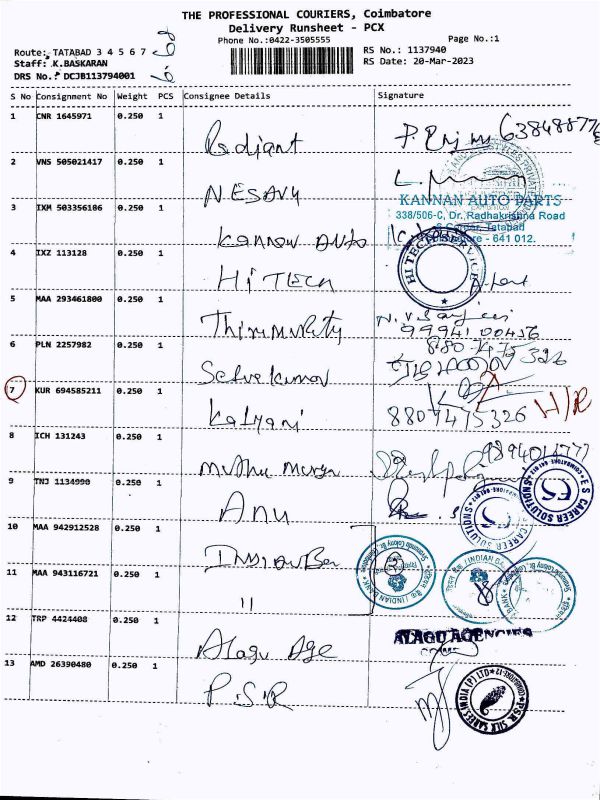 THE PROFESSIONAL COURIERS, Coimbatore
Delivery Runsheet - PCX
Phone No.:0422-3505555
Page No.:1
Route: TATABAD 3 4 5 6 7
Staff: K.BASKARAN
DRS No.: DCJB113794001
RS No.: 1137940
RS Date: 20-Mar-2023
S No Consignment No Weight PCS Consignee Details Signature
1 CNR 1645971 0.250 1
Radiant
2 VNS 505021417 0.250 1
NESAVU
3 IXM 503356186 0.250 1
KANNAN AUTO PARTS
338/506-C, Dr. Radhakrishna Road
Tatabad
641 012.
Kannan Auto
4 IXZ 113128 0.250 1
HI TECH SERVICE
Hi TECH
5 MAA 293461800 0.250 1
Thirumurty
99941 00456
6 PLN 2257982 0.250 1
Selvakumar
7 KUR 694585211 0.250 1
Kalyani 8807475326 H/R
8 ICH 131243 0.250 1
Muthu Murgan
9 TNJ 1134990 0.250 1
Anu
ES CAREER SOLUTIONS
10 MAA 942912528 0.250 1
INDIAN BANK
11 MAA 943116721 0.250 1
11
12 TRP 4424408 0.250 1
ALAGU AGENCIES
Alagu Age
13 AMD 26390480 0.250 1
P.S.R
PSR SILK SAREES INDIA (P) LTD